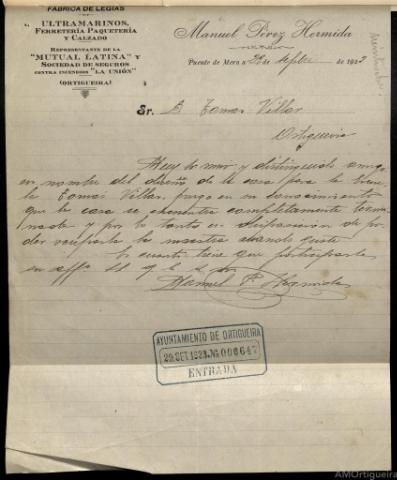 FABRICA DE LEGIAS
ULTRAMARINOS,
FERRETERÍA PAQUETERÍA
Y CALZADO
REPRESENTANTE DE LA
"MUTUAL LATINA" Y
SOCIEDAD DE SEGUROS
CONTRA INCENDIOS "LA UNIÓN"
(ORTIGUEIRA)
Manuel Pérez Hermida
Puente de Mera a de 192
Sr. D Tomas Villar
Ortigueira
Muy Sr mio y distinguido amigo
en nombre del dueño de la casa para la
de Tomás Villar, pongo en su conocimiento
que la casa se encuentra completamente termi
nada y por lo tanto en disposicion de po
der verificarla la maestra cuando guste
Es cuanto tiene que participarle
su affo SS q e s m
Manuel P. Hermida
AYUNTAMIENTO DE ORTIGUEIRA
29.SET.1923.No 000647
ENTRADA
AMOrtigueira